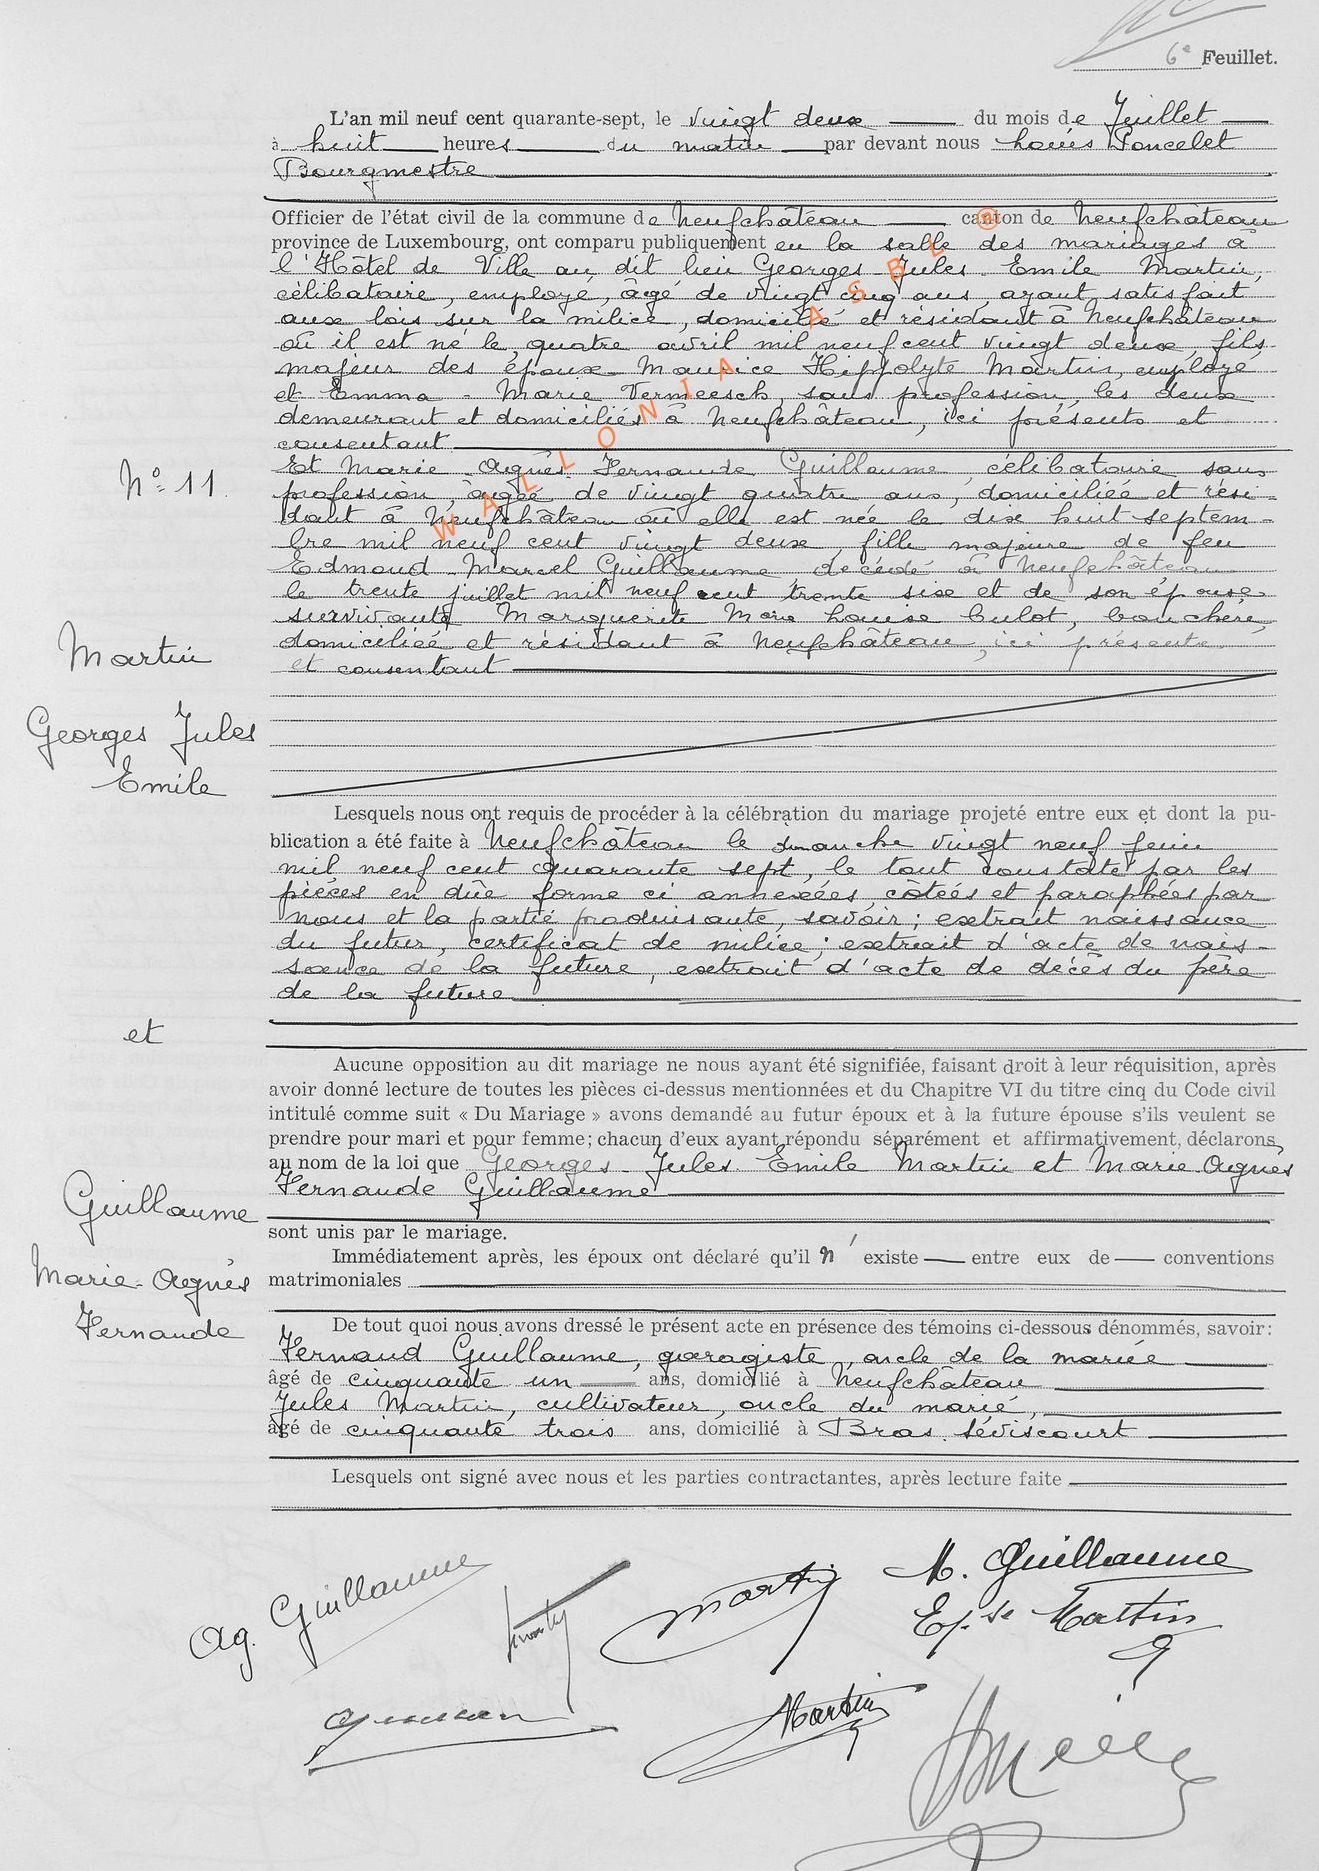 6e Feuillet.
L'an mil neuf cent quarante-sept, le vingt deux du mois de Juillet
à huit heures du matin par devant nous Louis Poncelet
Bourgmestre
Officier de l'état civil de la commune de Neufchâteau canton de Neufchâteau
province de Luxembourg, ont comparu publiquement en la salle des mariages à
l'Hôtel de Ville au dit lieu Georges Jules Emile Martin,
célibataire, employé, âgé de vingt cinq ans, ayant satisfait
aux lois sur la milice, domicilié et résidant à Neufchâteau
où il est né le quatre avril mil neuf cent vingt deux, fils
majeur des époux Maurice Hippolyte Martin, employé
et Emma - Marie Vermeesch, sans profession, les deux
demeurant et domiciliés à Neufchâteau, ici présents et
consentant
Et Marie - Agnès Fernande Guillaume, célibataire sans
profession, âgée de vingt quatre ans, domiciliée et rési-
dant à Neufchâteau où elle est née le dix huit septem-
bre mil neuf cent vingt deux, fille majeure de feu
Edmond - Marcel Guillaume, décédé à Neufchâteau
le trente juillet mil neuf cent trente six et de son épouse
survivante Marguerite Marie Louise Culot, bouchère,
domiciliée et résidant à Neufchâteau, ici présente
et consentant
N° 11.
Martin
Georges Jules
Emile
et
Guillaume
Marie-Agnès
Fernande
Lesquels nous ont requis de procéder à la célébration du mariage projeté entre eux et dont la pu-
blication a été faite à Neufchâteau le dimanche vingt neuf juin
mil neuf cent quarante sept, le tout constaté par les
pièces en dûe forme ci annexées, côtées et paraphées par
nous et la partie produisante, savoir; extrait naissance
du futur, certificat de milice; extrait d'acte de nais-
sance de la future, extrait d'acte de décès du père
de la future
Aucune opposition au dit mariage ne nous ayant été signifiée, faisant droit à leur réquisition, après
avoir donné lecture de toutes les pièces ci-dessus mentionnées et du Chapitre VI du titre cinq du Code civil
intitulé comme suit « Du Mariage » avons demandé au futur époux et à la future épouse s'ils veulent se
prendre pour mari et pour femme; chacun d'eux ayant répondu séparément et affirmativement, déclarons
au nom de la loi que Georges - Jules Emile Martin et Marie Agnès
Fernande Guillaume
sont unis par le mariage.
Immédiatement après, les époux ont déclaré qu'il n'existe entre eux de conventions
matrimoniales
De tout quoi nous avons dressé le présent acte en présence des témoins ci-dessous dénommés, savoir:
Fernand Guillaume, garagiste, oncle de la mariée
âgé de cinquante un ans, domicilié à Neufchâteau
Jules Martin, cultivateur, oncle du marié,
âgé de cinquante trois ans, domicilié à Bras Séviscourt
Lesquels ont signé avec nous et les parties contractantes, après lecture faite
Ag. Guillaume
Martin
M. Guillaume
Ep.se Martin
Martin
WALLONIA ASBL ®